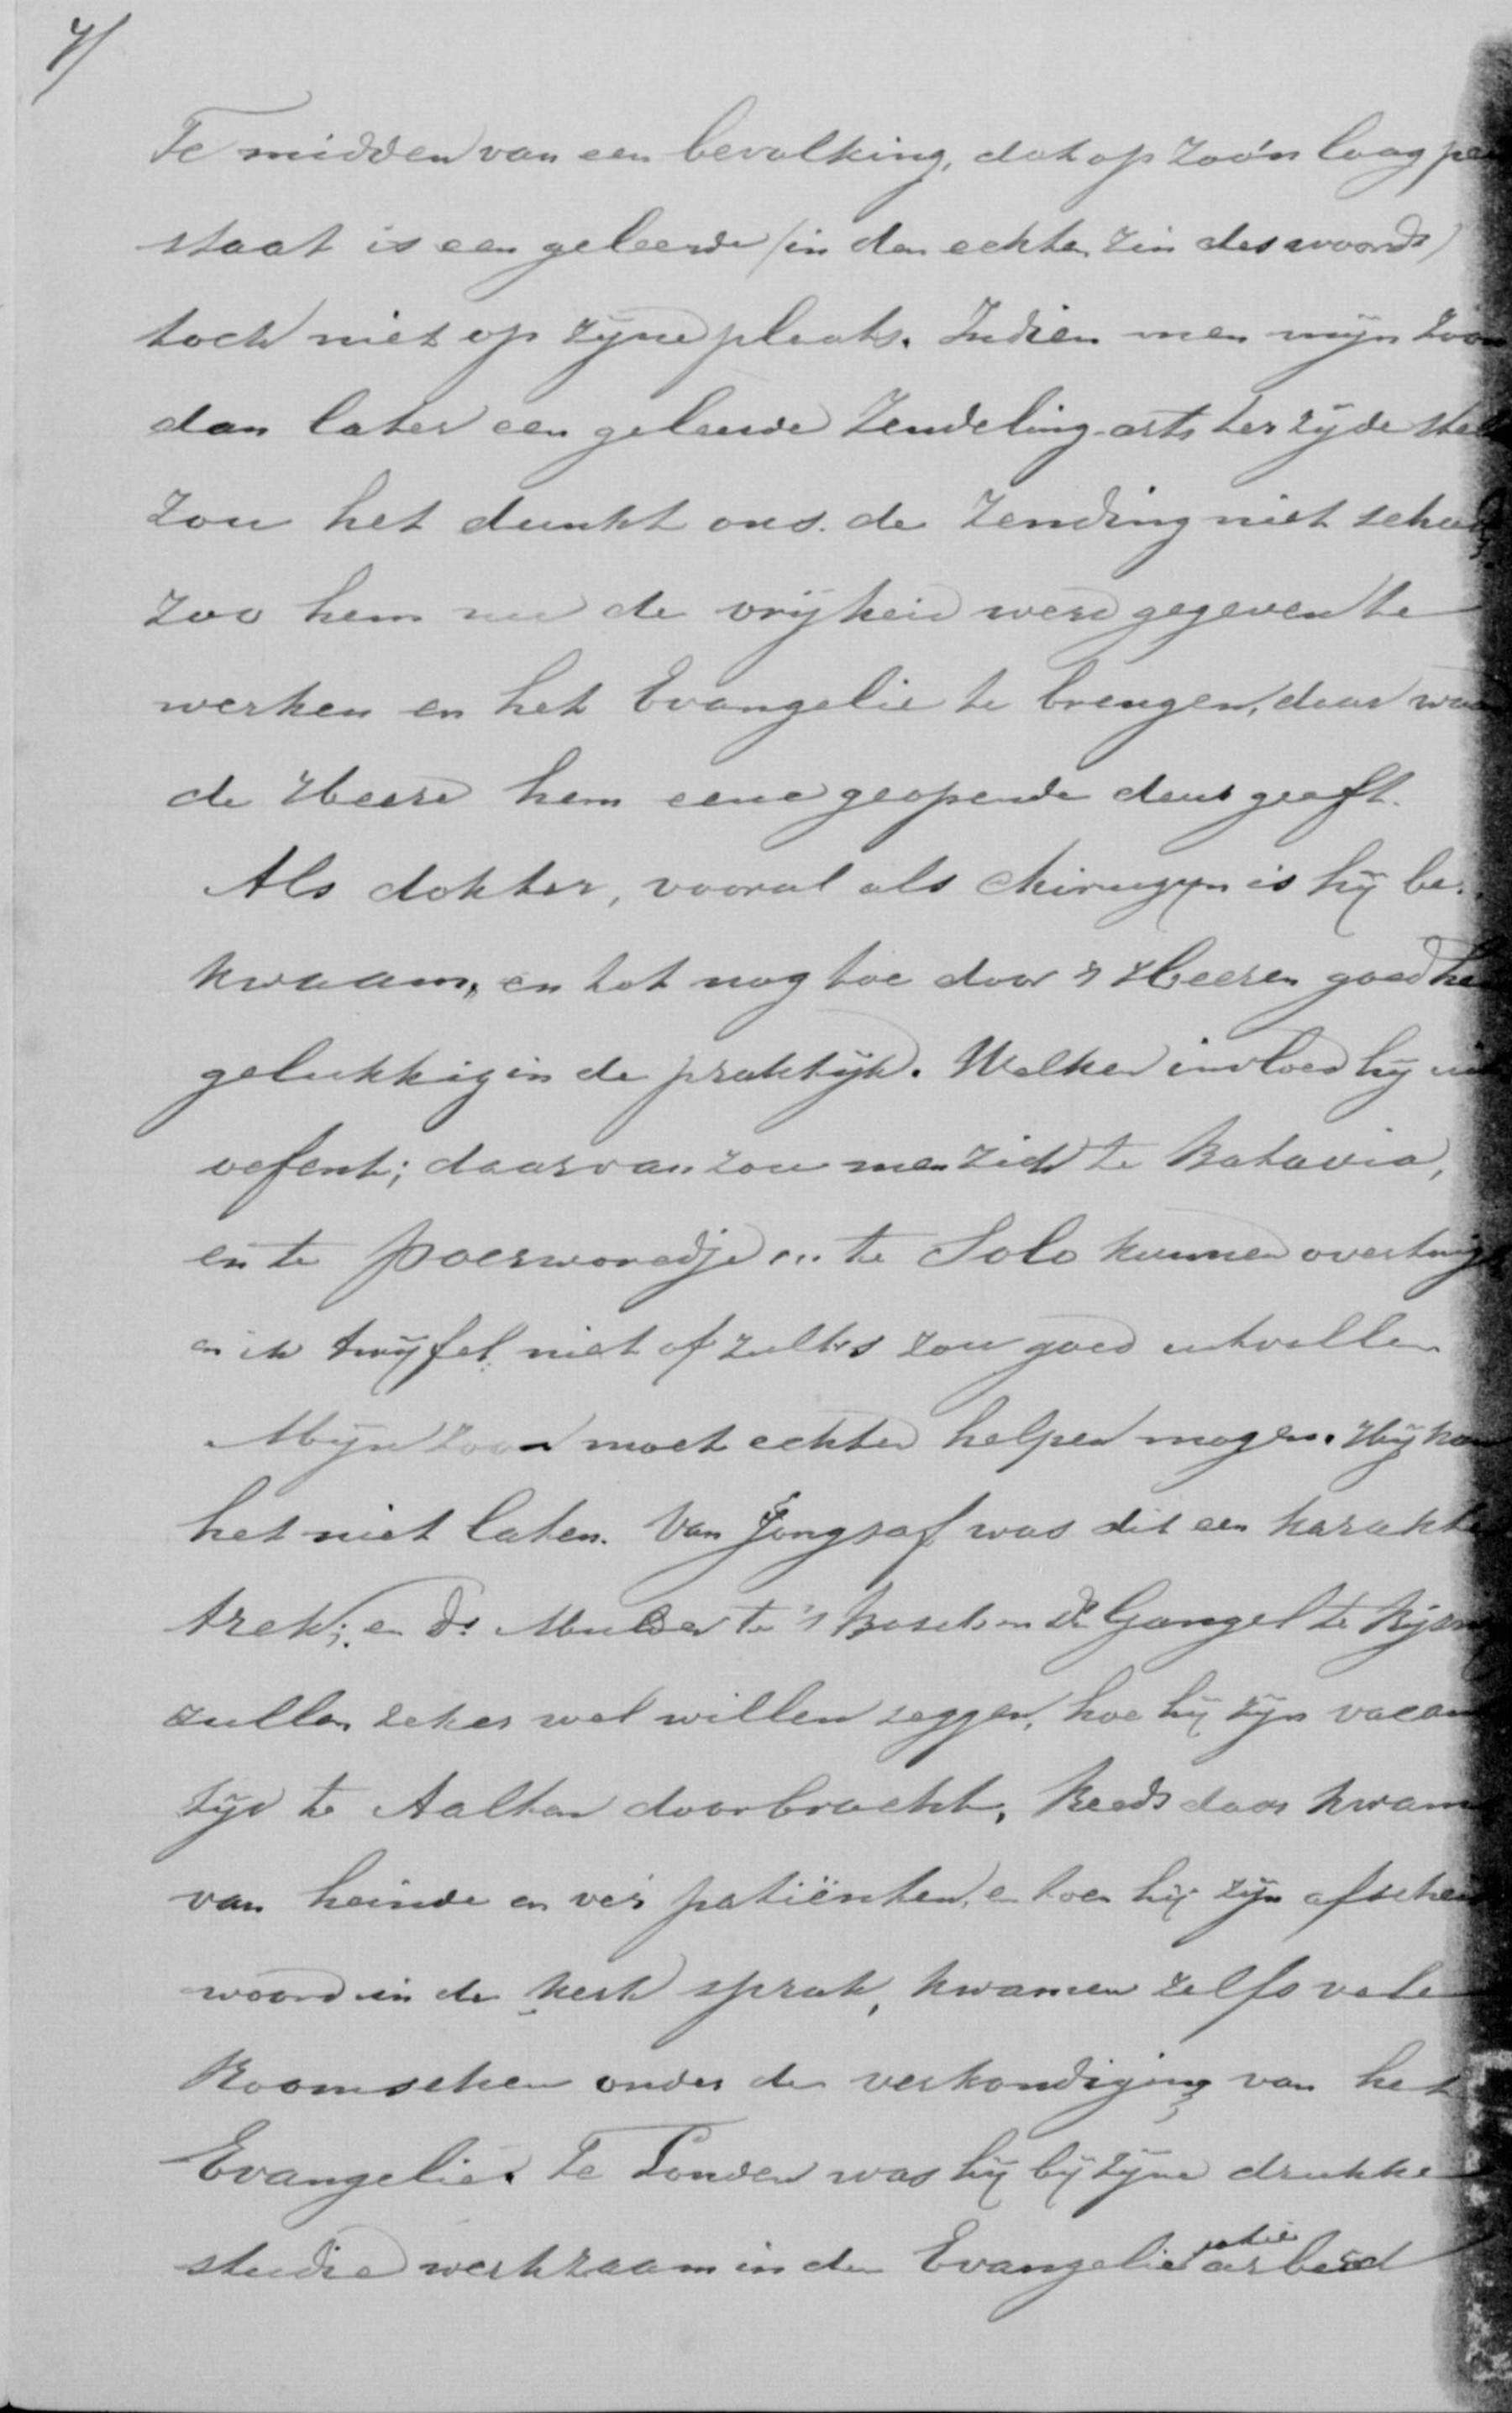 7/
Te midden van een bevolking, dat op zoo'n laag pe
staat is een geleerde (in den echten zin des woords)
toch niet op zijne plaats. Indien men mijn zoon
dan later een geleerde Zendeling-arts ter zijde stel
zou het dunkt ons de Zending niet schad
zoo hem nu de vrijheid werd gegeven te
werken en het Evangelie te brengen, daar waar
de Heere hem eene geopende deur geeft.
Als dokter, vooral als chirugijn is hij be-
kwaam, en tot nog toe door 's Heeren goedhe
gelukkig in de praktijk. Welken invloed hij uit
oefent; daarvan zou men zich te Batavia,
en te Poerworedjo en te Solo kunnen overtuig
en ik twijfel niet of zulks zou goed uitvallen
Mijn zoon moet echter helpen mogen. Hij kan
het niet laten. Van Jongsaf was dit een karakte
trek; en Ds. Mulder te 's Bosch en Ds Gangel te Rijs
zullen zeker wel willen zeggen, hoe hij zijn vacan
tijd te Aalten doorbracht, Reeds daar kwam
van heinde en ver patiënten, en toen hij zijn afschei
woord in de kerk sprak, kwamen zelfs vele
Roomschen onder de verkondiging van het
Evangelie. Te Londen was hij bij zijne drukke
studie werkzaam in den Evangelisatie arbeid